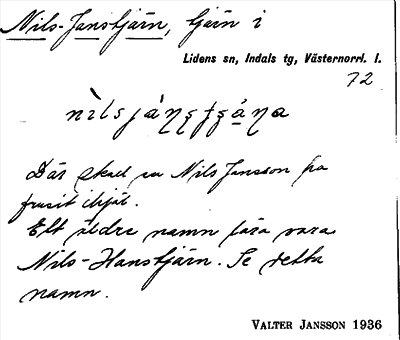 Nils-Janstjärn, tjärn i
Lidens sn, Indals tg, Västernorrl. l.
72
Där skall en Nils Jansson ha
frusit ihjäl.
Ett äldre namn lära vara
Nils-Hanstjärn. Se detta
namn.
VALTER JANSSON 1936